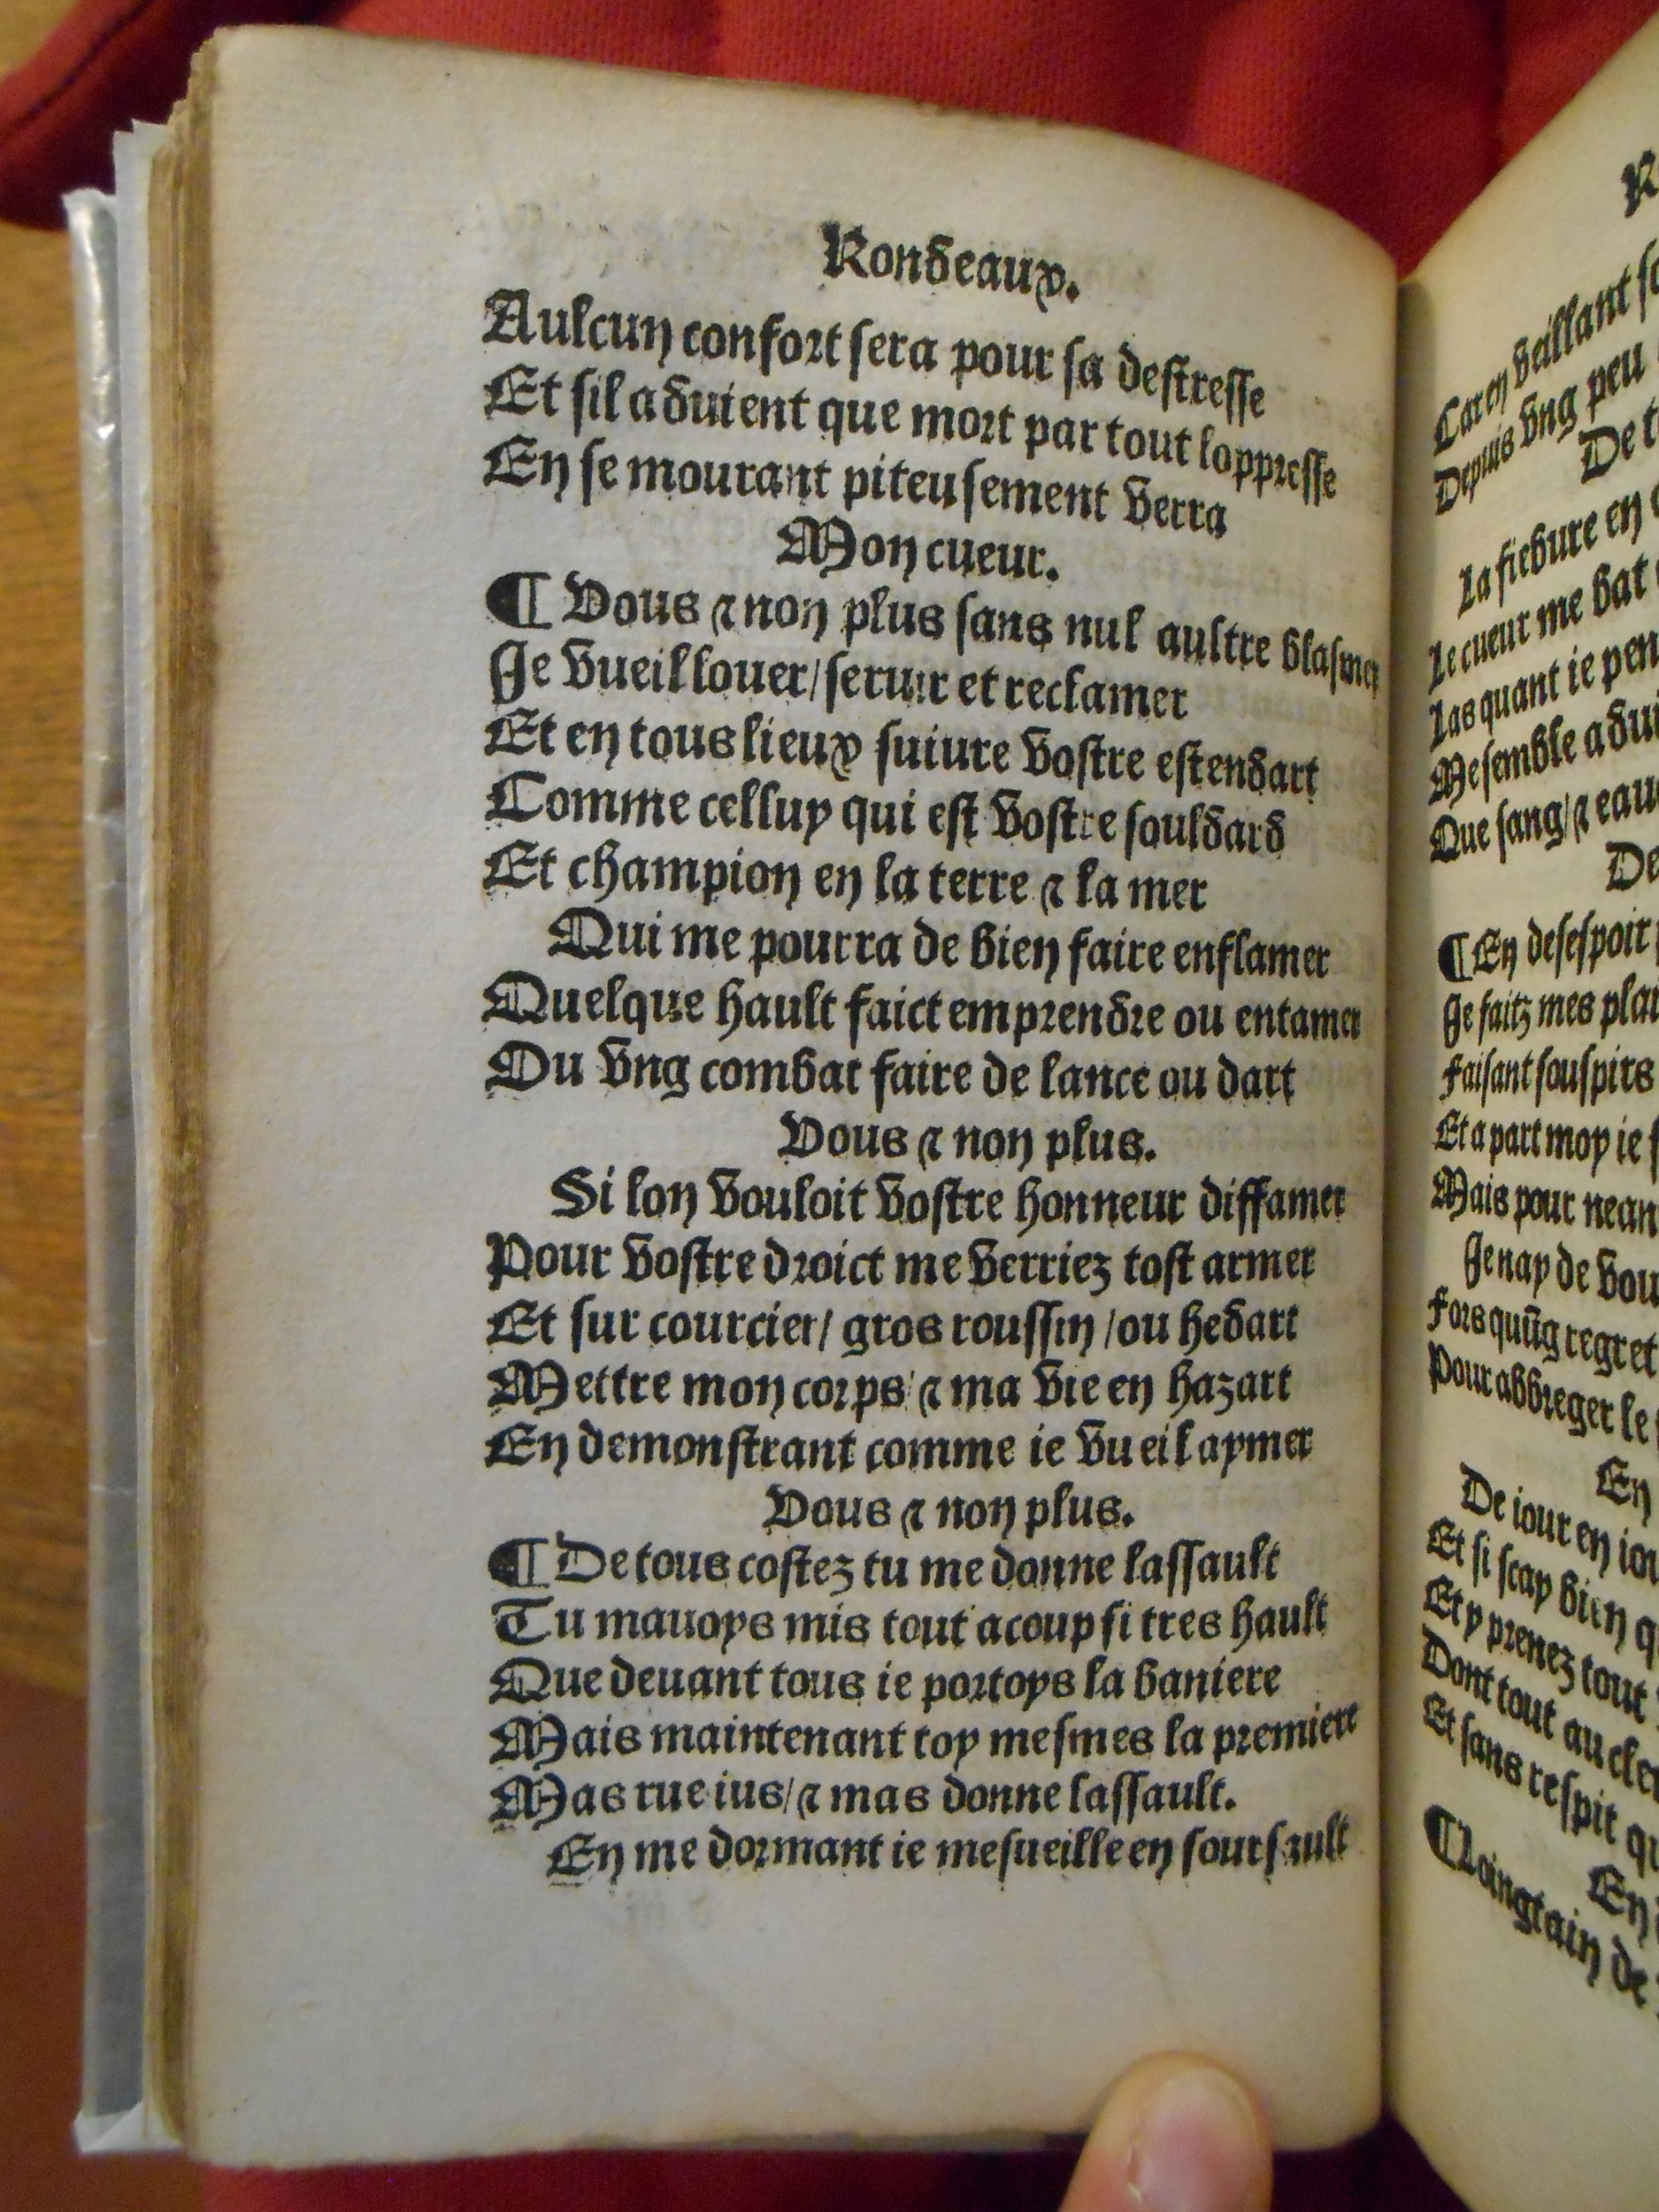 Rondeaux.
Aulcun confort sera pour sa destresse
Et sil aduient que mort par tout loppresse
En se mourant piteusement verra
Mon cueur.
¶ Vous & non plus sans nul aultre blasmer
Je vueil louer/ seruir et reclamer
Et en tous lieux suiure vostre estendart
Comme celluy qui est vostre souldard
Et champion en la terre & la mer
Qui me pourra de bien faire enflamer
Quelque hault faict emprendre ou entamer
Ou vng combat faire de lance ou dart
Vous & non plus.
Si lon vouloit vostre honneur diffamer
Pour vostre droict me verriez tost armer
Et sur courcier/ gros roussin /ou hedart
Mettre mon corps/ & ma vie en hazart
En demonstrant comme ie vueil aymer
Vous & non plus.
¶ De tous costez tu me donne lassault
Tu mauoys mis tout acoup si tres hault
Que deuant tous ie portoys la baniere
Mais maintenant toy mesmes la premiere
Mas rue ius/ & mas donne lassault.
En me dormant ie mesueille en soursault
Car en veillant
Depuis vng peu
De
La fiebure en
Le cueur me bat
Las quant ie
Me semble
Que sang/ & eau
De
¶ En desespoir
Je faitz mes
Faisant souspirs
Et a part moy ie
Mais pour
Je nay de
Fors quūg regret
Pour abbreger le
En
De iour en
Et si scay bien
Et y prenez tout
Dont tout au
Et sans respit
En
¶ Loingtain de